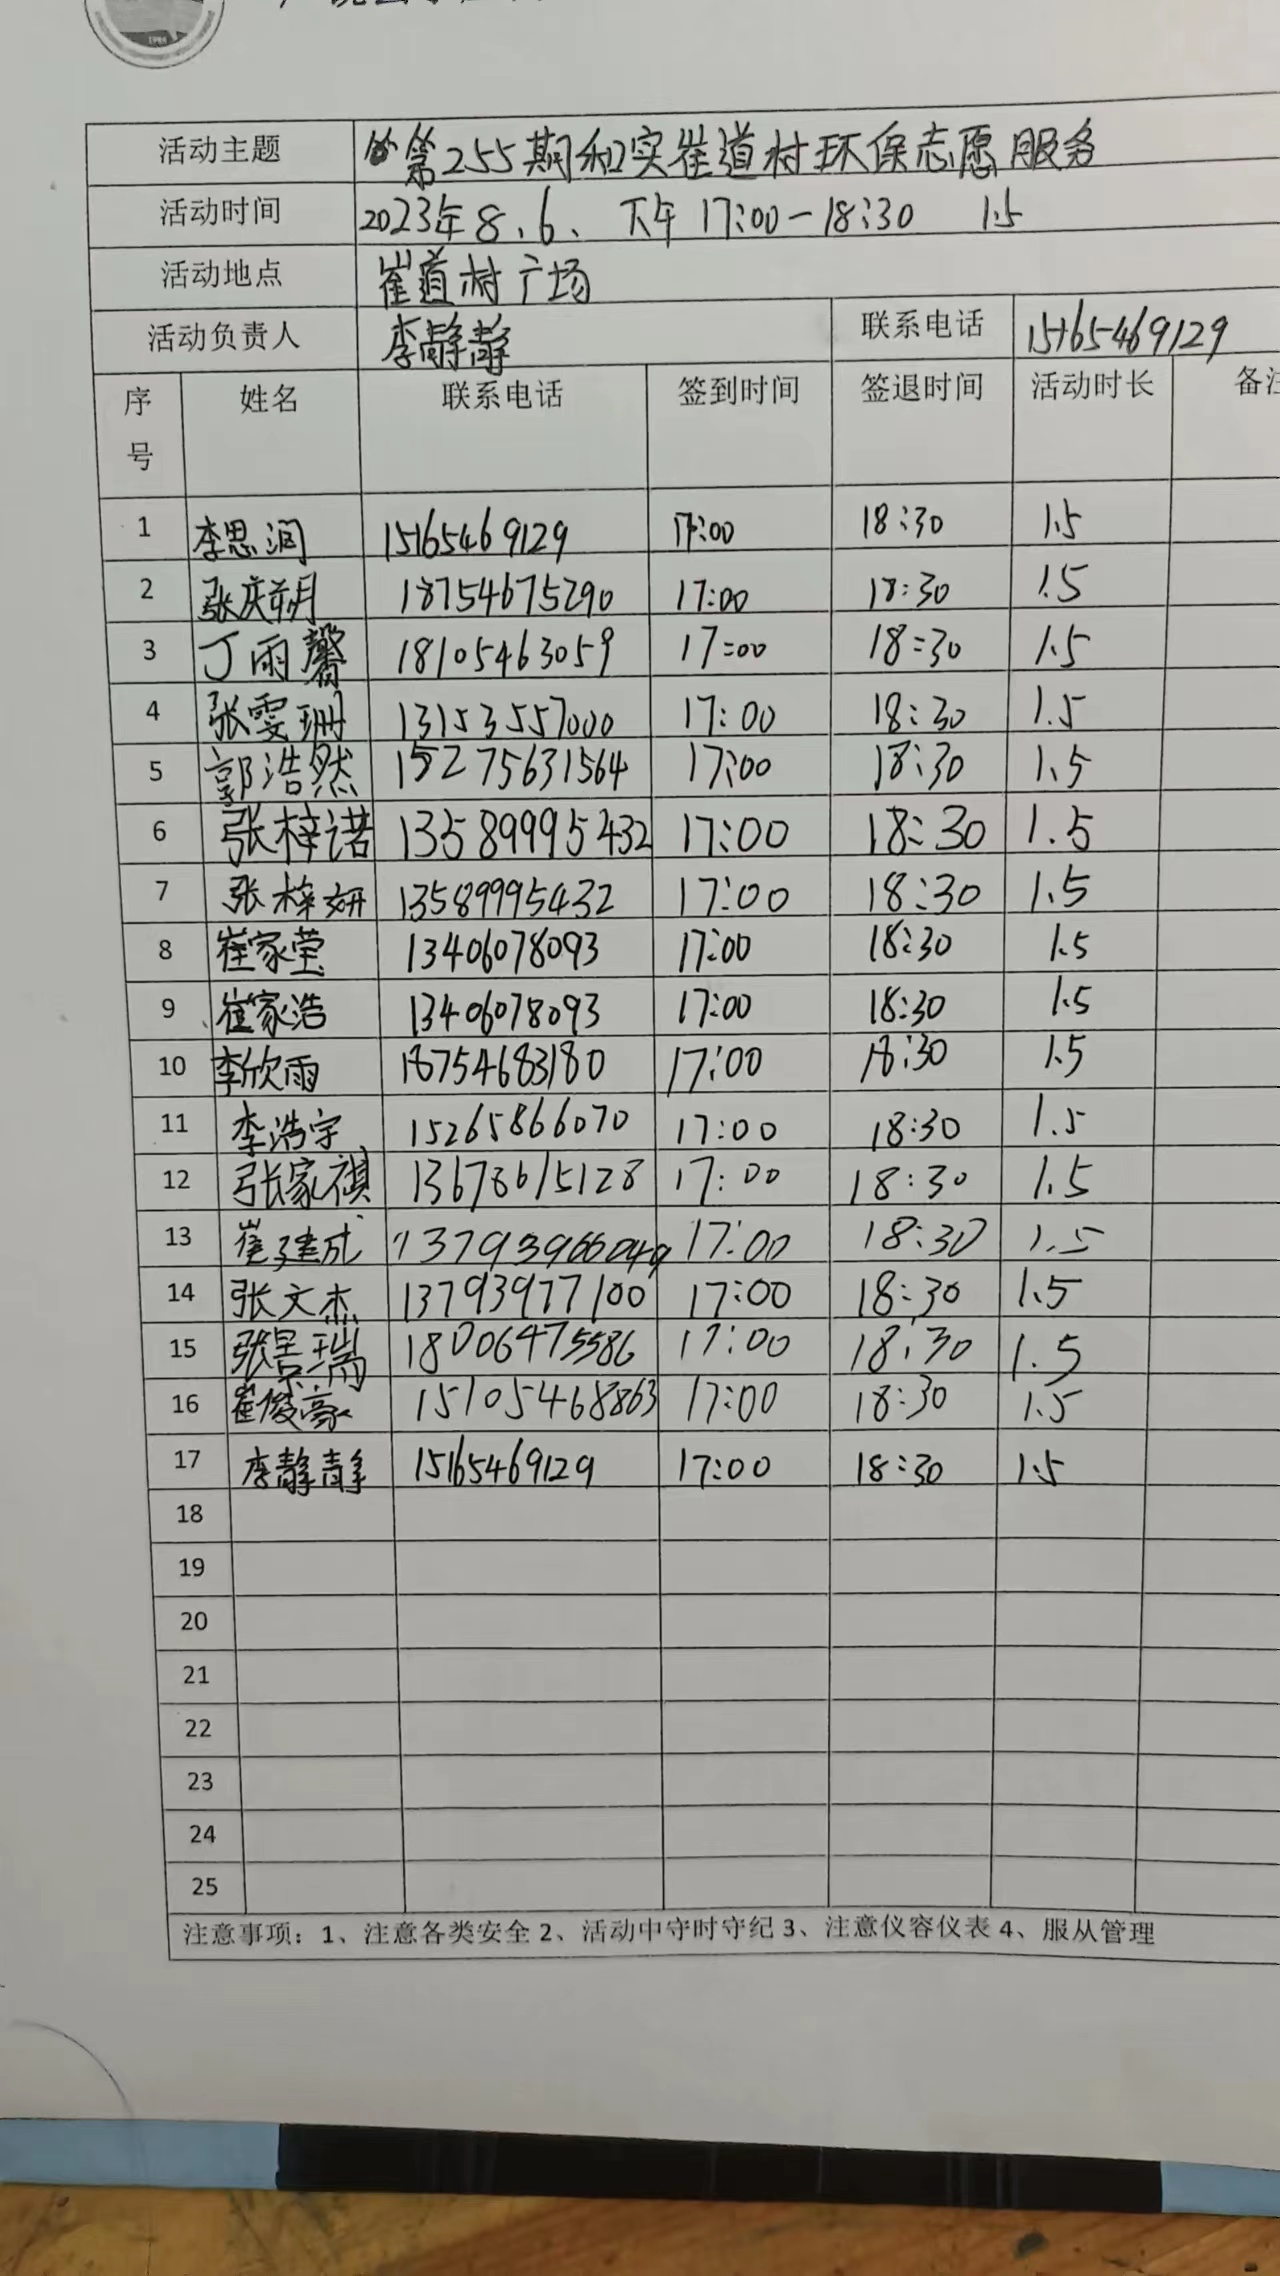 1984
活动主题 第255期和实崔道村环保志愿服务
活动时间 2023年8.6、下午17:00-18:30 1.5
活动地点 崔道村广场
活动负责人 李静静 联系电话 15165469129
序号 姓名 联系电话 签到时间 签退时间 活动时长 备注
1 李思润 15165469129 17:00 18:30 1.5
2 18754675290 17:00 18:30 1.5
3 丁雨馨 18105463059 17:00 18:30 1.5
4 张雯珊 13153557000 17:00 18:30 1.5
5 郭浩然 15275631564 17:00 18:30 1.5
6 张梓诺 13589995432 17:00 18:30 1.5
7 张梓妍 13589995432 17:00 18:30 1.5
8 崔家莹 13406078093 17:00 18:30 1.5
9 崔家浩 13406078093 17:00 18:30 1.5
10 李欣雨 18754683180 17:00 18:30 1.5
11 李浩宇 15265866070 17:00 18:30 1.5
12 张家祺 13678615128 17:00 18:30 1.5
13 崔建成 13793966049 17:00 18:30 1.5
14 张文杰 13793977100 17:00 18:30 1.5
15 张景瑞 18006475586 17:00 18:30 1.5
16 崔俊豪 15105468863 17:00 18:30 1.5
17 李静静 15165469129 17:00 18:30 1.5
18
19
20
21
22
23
24
25
注意事项：1、注意各类安全 2、活动中守时守纪 3、注意仪容仪表 4、服从管理